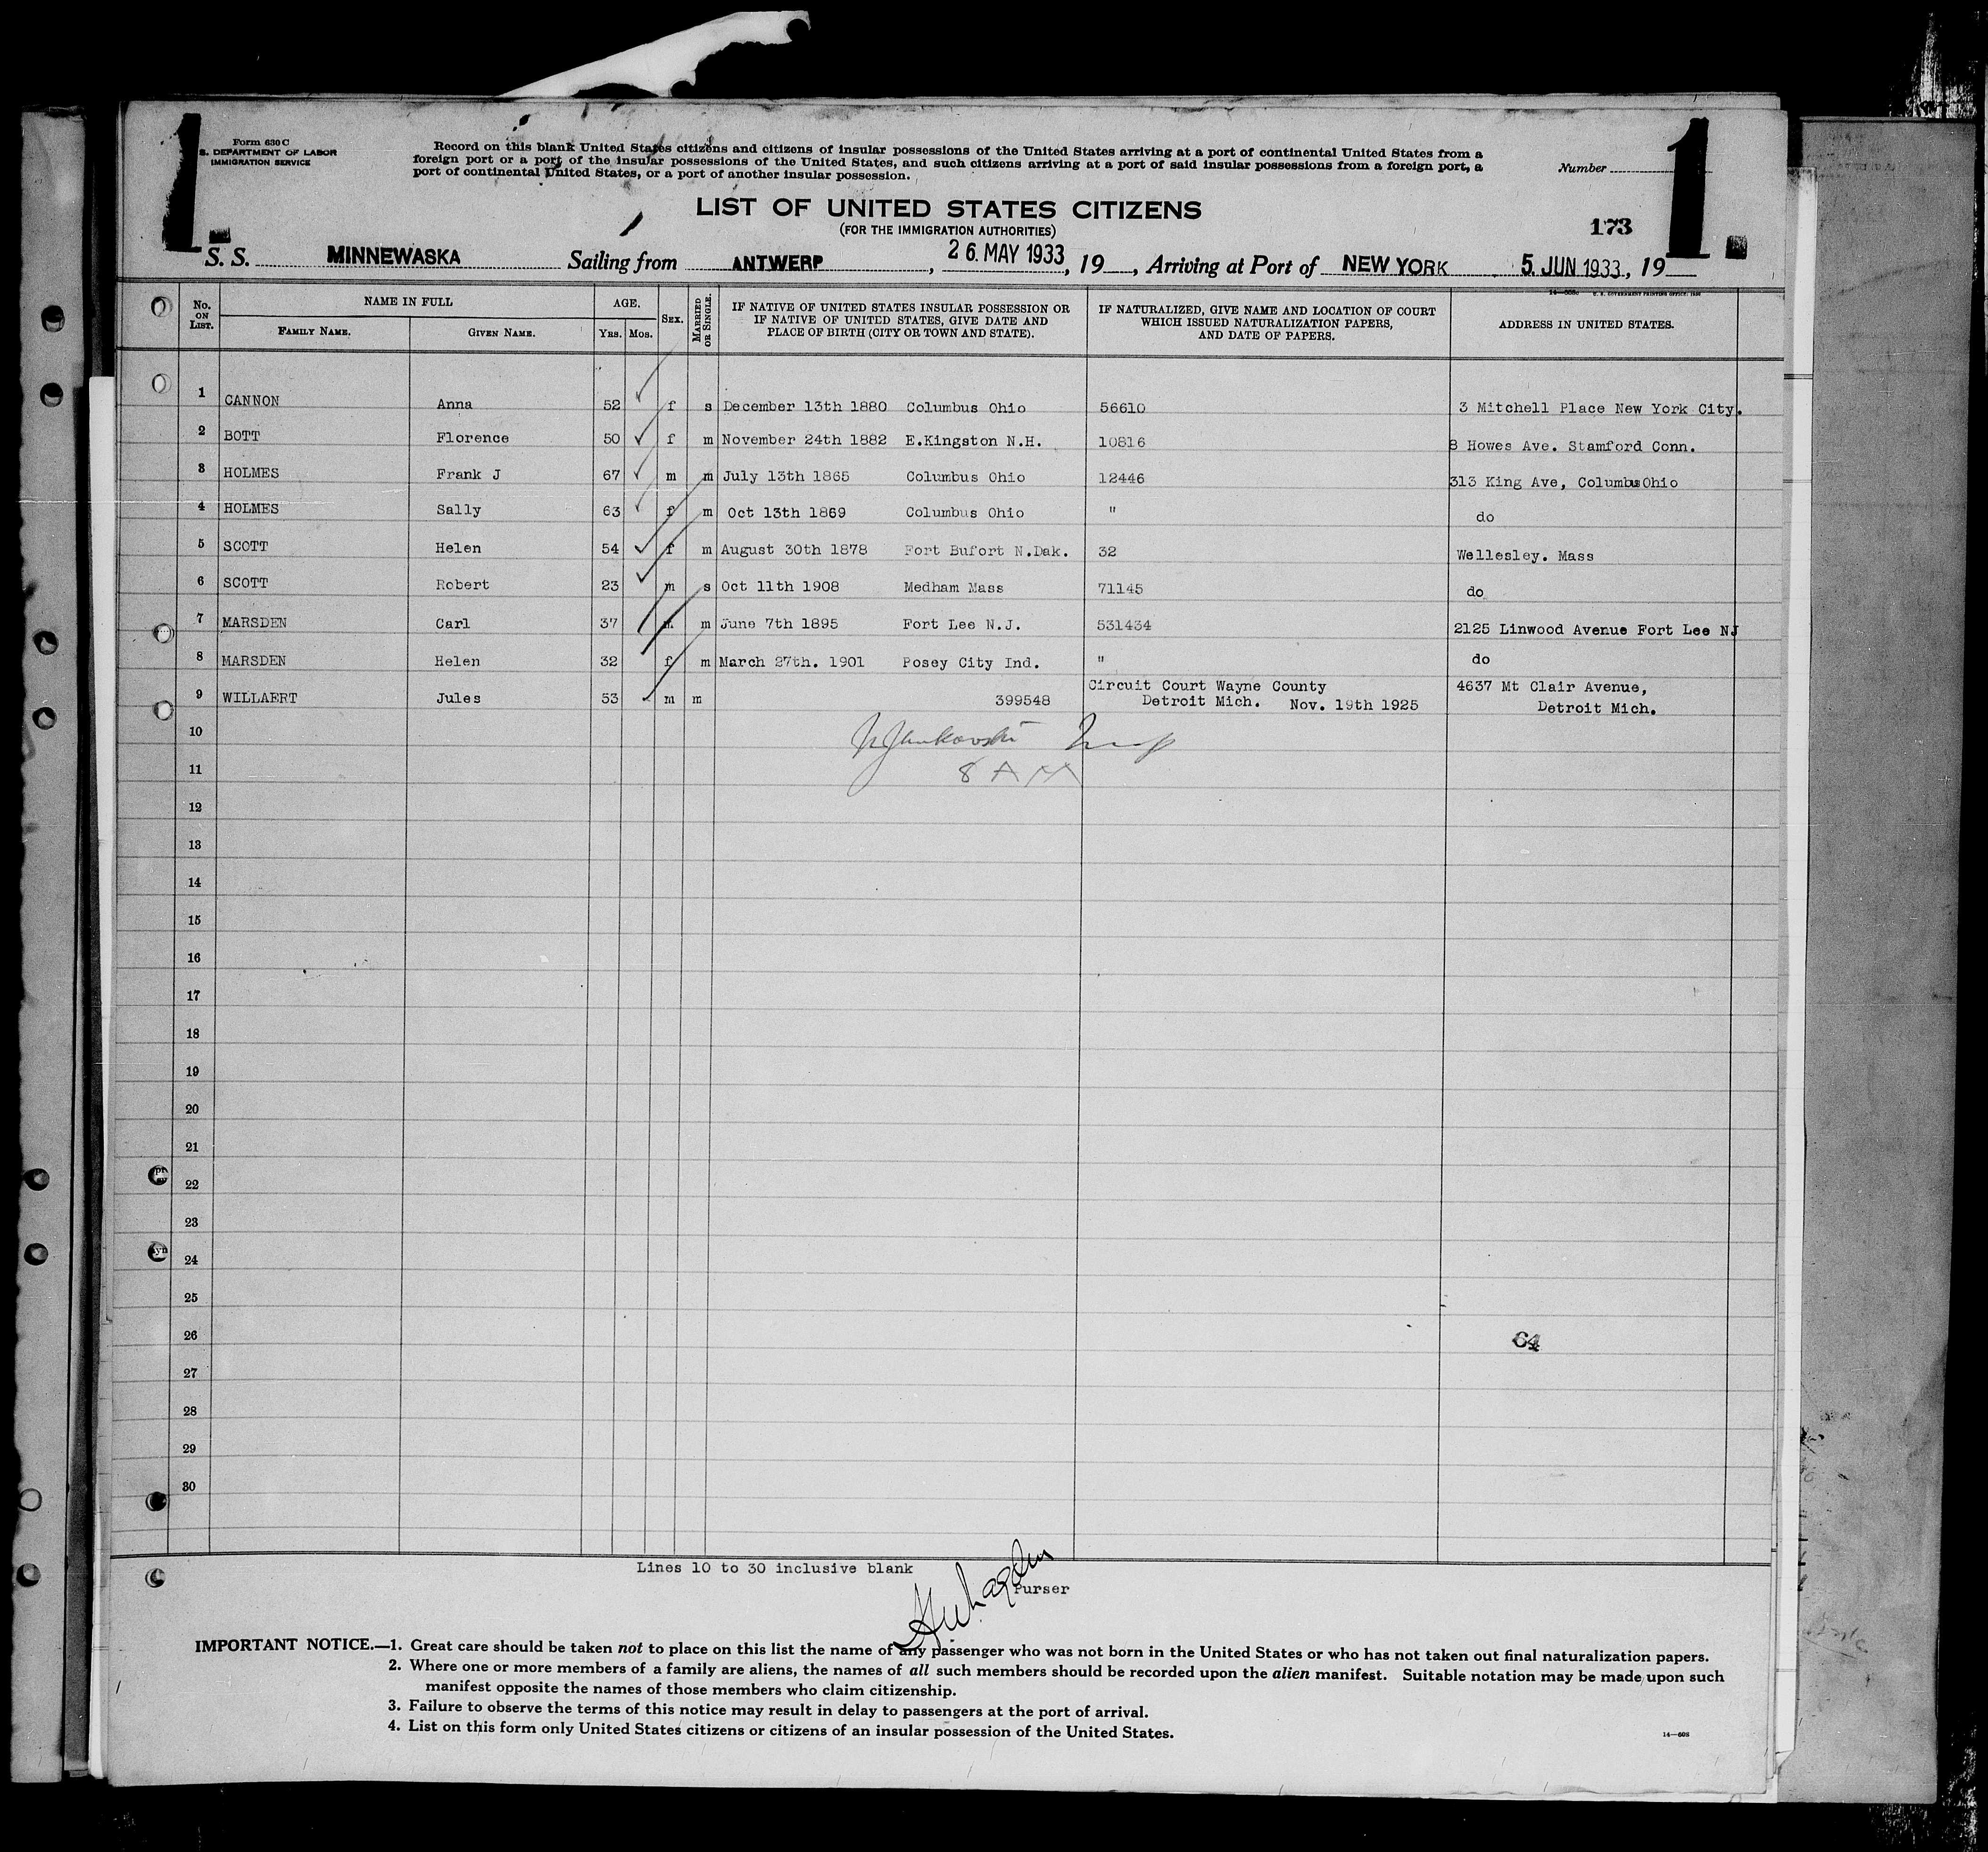 1 1.
Form 630 C
S. DEPARTMENT OF LABOR
IMMIGRATION SERVICE
Record on this blank United States citizens and citizens of insular possessions of the United States arriving at a port of continental United States from a
foreign port or a port of the insular possessions of the United States, and such citizens arriving at a port of said insular possessions from a foreign port, a
port of continental United States, or a port of another insular possession.
Number
LIST OF UNITED STATES CITIZENS
(FOR THE IMMIGRATION AUTHORITIES)
173
S. S. MINNEWASKA Sailing from ANTWERP, 26. MAY 1933, 19, Arriving at Port of NEW YORK 5. JUN 1933, 19
U. S. GOVERNMENT PRINTING OFFICE
No. ON LIST. NAME IN FULL AGE. SEX. MARRIED OR SINGLE. IF NATIVE OF UNITED STATES INSULAR POSSESSION OR IF NATIVE OF UNITED STATES, GIVE DATE AND PLACE OF BIRTH (CITY OR TOWN AND STATE). IF NATURALIZED, GIVE NAME AND LOCATION OF COURT WHICH ISSUED NATURALIZATION PAPERS, AND DATE OF PAPERS. ADDRESS IN UNITED STATES.
FAMILY NAME. GIVEN NAME. YRS. MOS.
1 CANNON Anna 52 f s December 13th 1880 Columbus Ohio 56610 3 Mitchell Place New York City.
2 BOTT Florence 50 f m November 24th 1882 E.Kingston N.H. 10816 8 Howes Ave. Stamford Conn.
3 HOLMES Frank J 67 m m July 13th 1865 Columbus Ohio 12446 313 King Ave, Columbus Ohio
4 HOLMES Sally 63 f m Oct 13th 1869 Columbus Ohio " do
5 SCOTT Helen 54 f m August 30th 1878 Fort Bufort N.Dak. 32 Wellesley. Mass
6 SCOTT Robert 23 m s Oct 11th 1908 Medham Mass 71145 do
7 MARSDEN Carl 37 m m June 7th 1895 Fort Lee N.J. 531434 2125 Linwood Avenue Fort Lee NJ
8 MARSDEN Helen 32 f m March 27th. 1901 Posey City Ind. " do
9 WILLAERT Jules 53 m m 399548 Circuit Court Wayne County 4637 Mt Clair Avenue,
Detroit Mich. Nov. 19th 1925 Detroit Mich.
10
8 AM
11
12
13
14
15
16
17
18
19
20
21
22
23
24
25
26
64
27
28
29
30
Lines 10 to 30 inclusive blank
Purser
IMPORTANT NOTICE.—1. Great care should be taken not to place on this list the name of any passenger who was not born in the United States or who has not taken out final naturalization papers.
2. Where one or more members of a family are aliens, the names of all such members should be recorded upon the alien manifest. Suitable notation may be made upon such
manifest opposite the names of those members who claim citizenship.
3. Failure to observe the terms of this notice may result in delay to passengers at the port of arrival.
4. List on this form only United States citizens or citizens of an insular possession of the United States.